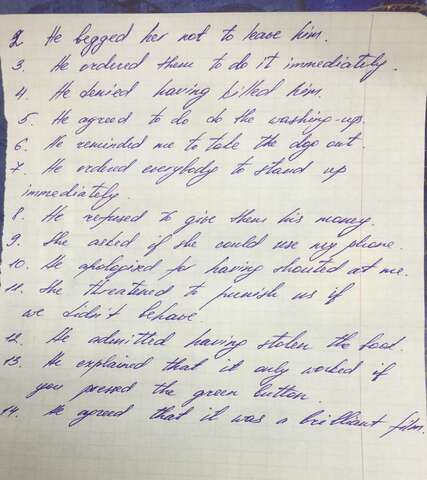 2 He begged her not to leave him.
3. He ordered them to do it immediately.
4. He denied having killed him.
5. He agreed to do do the washing-up.
6. He reminded me to take the dog out.
7. He ordered everybody to stand up
immediately.
8. He refused to give them his money.
9. She asked if she could use my phone.
10. He apologized for having shouted at me.
11. She threatened to punish us if
we didn't behave
12. He admitted having stolen the food.
13. He explained that it only worked if
you pressed the green button.
14. He agreed that it was a brilliant film.